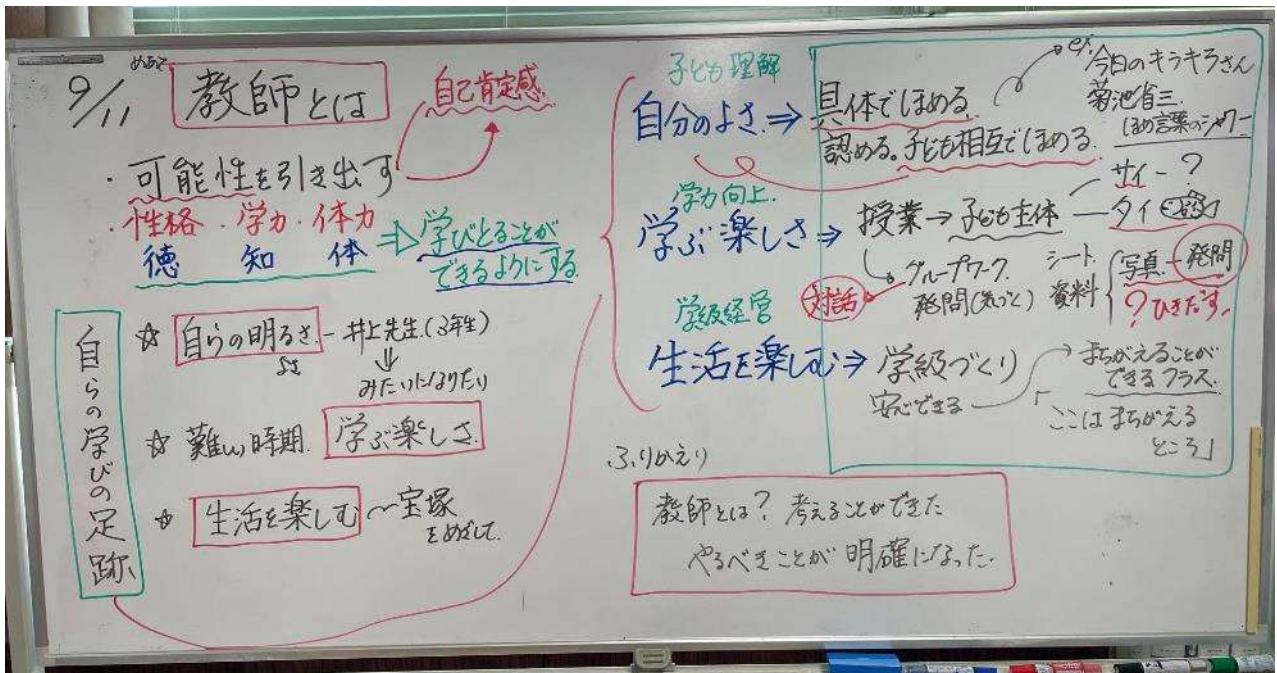 9/11
めあて
教師とは
自己肯定感
・可能性を引き出す
性格・学力・体力
徳 知 体
⇒学びとることが
できるようにする
自らの学びの足跡
☆ 自らの明るさ - 井上先生(3年生)
よさ
みたいになりたい
☆ 難しい時期 学ぶ楽しさ
☆ 生活を楽しむ 〜宝塚
をめざして
子ども理解
自分のよさ⇒具体でほめる
認める。子ども相互でほめる
ex.
今日のキラキラさん
菊池省三
ほめ言葉のシャワー
学力向上
学ぶ楽しさ⇒授業→子ども主体
サイ-?
タイ
対話
グループワーク
発問(気づく)
シート
資料
写真-発問
?ひきだす
学級経営
生活を楽しむ⇒学級づくり
安心できる
まちがえることが
できるクラス
「ここはまちがえる
ところ」
・ふりかえり
教師とは?考えることができた
やるべきことが明確になった.